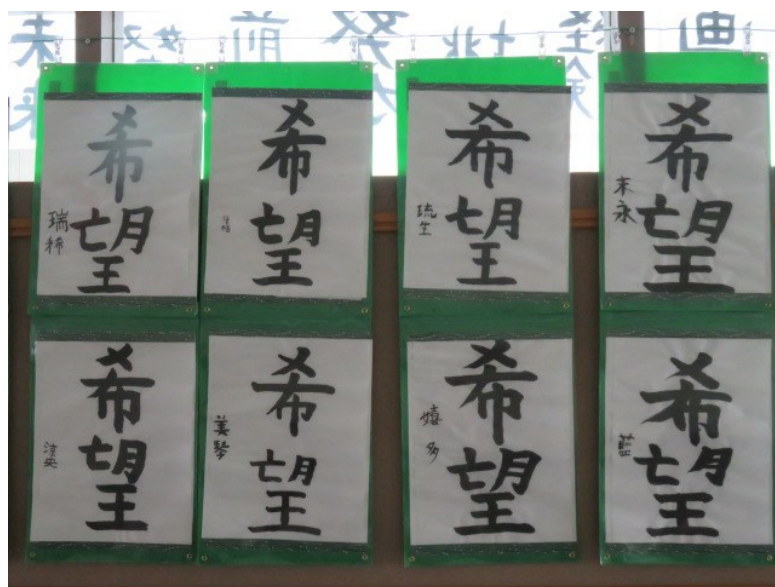 希望
瑞稀
希望
希望
琉生
希望
末永
希望
希望
美琴
希望
嬉多
希望
藍